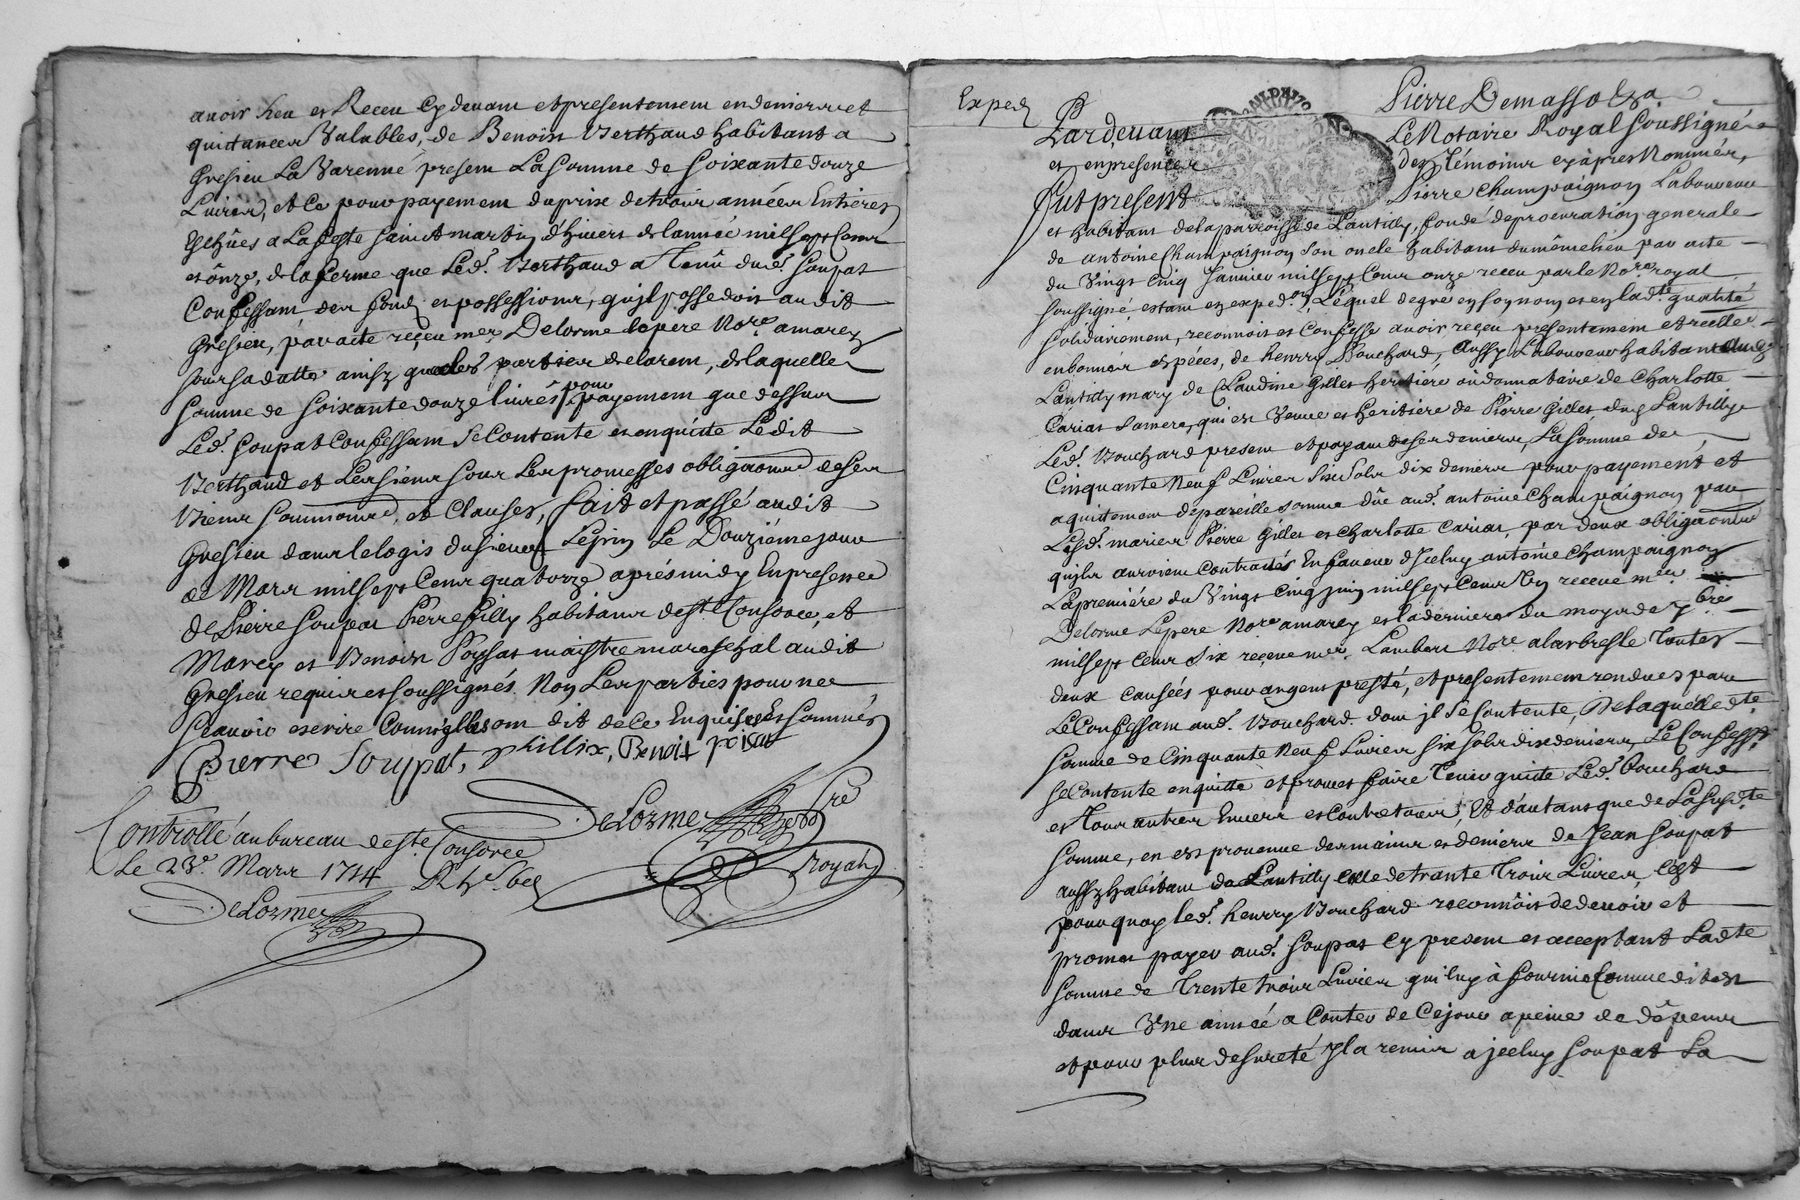 avoir heu et Receu cy devant et presentement en deniers et
quictances Valables, de Benoist Berthaud habitant a
Gresieu La Varenne present La Somme de Soixante douze
Livres, et Ce pour payement du prix de trois années Entieres
Escheües a La feste Sainct martin d'hiver de lannée mil sept Cens
et ônze, de la ferme que Led. Berthaud a Tenû dud. Soupat
Confessant des fonds et possessions, qu'jl possedoit audit
Gresieu, par acte reçeu me Delorme le pere No.re a marcy
sous sa datte ainsy que les parties declarent, de laquelle
Somme de Soixante douze livres pour payement que dessus
Led. Soupat Confessant Se Contente et en quitte Ledit
Berthaud et Les siens sous Les promesses obligaons de Ses
Biens Soumissons, et Clauses, fait et passé audit
Gresieu dans le logis du Sieur Lespin Le Douziéme jour
de Mars mil sept Cens quatorze aprés midy En presence
de Pierre Soupat Pierre filly habitans de St. Consorce, et
Marcy et Benoist Poysat maistre mareschal audit
Gresieu requis et soussignés. Non Les parties pour ne
Scavoir escrire Comm'elles ont dit de Ce Enquises Et Sommés
Pierre Soupat, phillix, Benoit poisat
DeLorme No.re
Royal
Controllé au bureau de St. Consorce
Le 23.e Mars 1714
DeLorme
Exped
Pierre Demasso &a
Pardevant Le Notaire Royal Soussigné
et en presence des témoins cy àpres Nommés,
fut present Pierre Champaignon Laboureur
et habitant de la parroisse de Lantilly, fondé de procuration generale
de antoine Champaignon Son oncle habitant du même lieu par acte
du Vingt Cinq Janvier mil sept Cens onze receu par le No.re royal
soussigné estant en exped.on, Lequel de gré en son nom et en lad.te qualité
solidairement, reconnoit et Confesse avoir reçeu presentement et reellem.
en bonnes espéces, de henry Bouchard, Aussy Laboureur habitant dud.
Lantilly mary de Claudine Gilles heritiére où donnataire de Charlotte
Carias sa mere, qui est Veuve et heritiére de Pierre Gilles dud Lantilly
Led. Bouchard present et payant de ses deniers, La Somme de
Cinquante Neuf Livres Six Sols dix deniers pour payement et
aquittement de pareille somme dûe aud. antoine Champaignon par
Lesd. mariés Pierre Gilles et Charlotte Carias, par deux obligaons
qu'jls auroient Contractés En faveur d'Jceluy antoine Champaignon
La premiére du Vingt Cinq juin mil sept Cens Un receue me
Delorme Le pere No.re a marcy et la derniere du moys de 7bre
mil sept Cens Six reçeue me. Lambert No.re a larbresle Toutes
deux causées pour argent presté, et presentement rendues par
Le Confessant aud. Bouchard dont jl Se Contente, De laquelle d.te
Somme de Cinquante Neuf Livres Six Sols dix deniers Le Confess.t
se Contente en quitte et promet faire Tenir quitte Led. Bouchard
et Tous autres Envers et Contre tous, Et d'autant que de La Susd.te
Somme, en est provenue des mains et deniers de Jean Soupat
aussy habitant de Lantilly Celle de trante Trois Livres C'est
pourquoy led. henry Bouchard reconnôit de devoir et
promet payer aud. Soupat Cy present et acceptant Ladte
Somme de Trente trois Livres qu'il luy à fournie Comme dit est
dans Vne année a Conter de Cejour a peine de dêpens
et pour plus de sureté Jl a remis a jceluy Soupat La